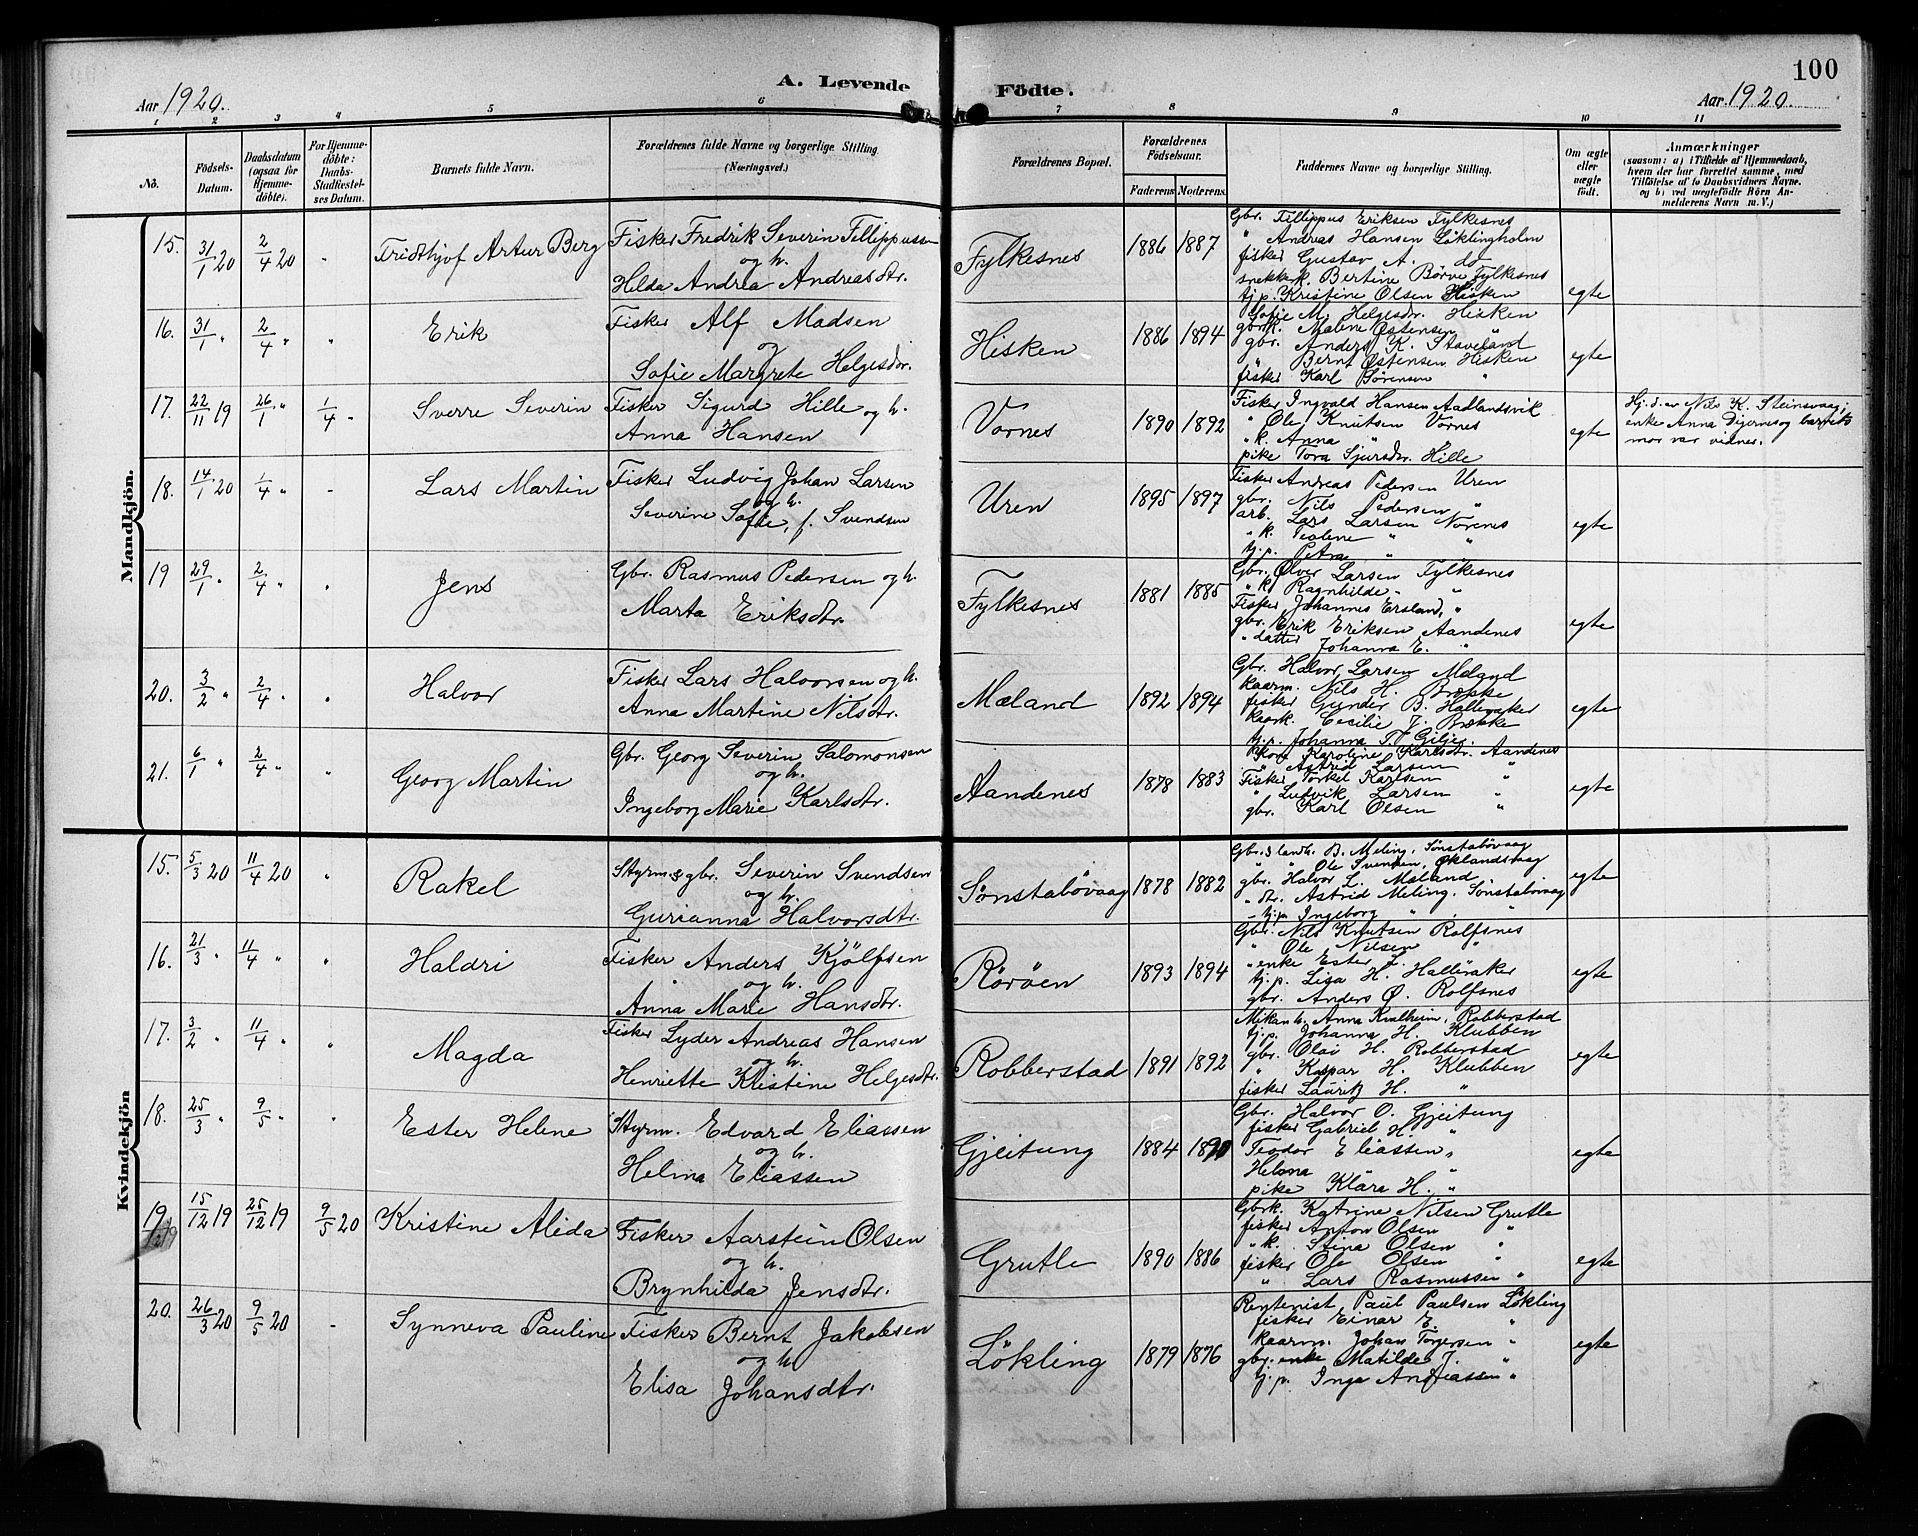 100
A. Levende Fødte.
Aar 1920.
Aar 1920.
1 2 3 4 5 6 7 8 9 10 11
No.
Fødsels-Datum.
Daabsdatum (ogsaa for Hjemmedøbte).
For Hjemmedøbte: Daabs-Stadfæstelses Datum.
Barnets fulde Navn.
Forældrenes fulde Navne og borgerlige Stilling (Næringsvei.)
Forældrenes Bopæl.
Forældrenes Fødselsaar.
Faderens. Moderens.
Faddernes Navne og borgerlige Stilling.
Om ægte eller uægte født.
Anmærkninger
(saasom: a) i Tilfælde af Hjemmedaab, hvem der har forrettet samme, med Tilføielse af to Daabsvidners Navne. og b) ved uægtefødte Børn Anmelderens Navn m. V.)
Mandkjön.
15. 31/1 20 2/4 20 - Fridthjof Artur Berg
Fisker Fredrik Severin Fillippussen
og h.
Hilda Andrea Andreasdtr.
Fylkesnes 1886 1887
Gbr. Fillippus Eriksen Fylkesnes
" Andreas Hansen Løklingholm
fisker Gustav A. do
snekkerk. Bertine Børve Fylkesnes
tj.p. Kristine Olsen Hisken
egte
16. 31/1 " 2/4 " " Erik
Fisker Alf Madsen
og
Sofie Margrete Helgesdtr.
Hisken 1886 1894
Sofie M. Helgesdtr. Hisken
gbrk. Malene Østensen "
gbr. Anders K. Staveland
" Bernt Østensen Hisken
fisker Karl Sørensen "
egte
17. 22/11 19 26/1 " 1/4 " Sverre Severin
Fisker Sigurd Hille og h.
Anna Hansen
Vornes 1890 1892
Fisker Ingvald Hansen Aadlandsvik
" Ole Knutsen Vornes
" k. Anna "
pike Tora Sjursdtr. Hille
egte
Hj.d. av Nils K. Steinsvaag;
enke Anna Digernes og barnets
mor var vidner.
18. 14/1 20 1/4 " - Lars Martin
Fisker Ludvig Johan Larsen
og h.
Severine Sofie, f. Svendsen
Uren 1895 1897
Fisker Andreas Pedersen Uren
gbr. Nils Pedersen "
arb. Lars Larsen Nørenes
" k. Teoline " "
tj.p. Petra "
egte
19 29/1 " 2/4 " " Jens
Gbr. Rasmus Pedersen og h.
Marta Eriksdtr.
Fylkesnes 1881 1885
Gbr. Ølver Larsen Fylkesnes
" k. Ragnhilde "
Fisker Johannes Ersland, "
gbr. Erik Eriksen Aandenes
" datter Johanna E. "
egte
20. 3/2 " 2/4 " " Halvor
Fisker Lars Halvorsen og h.
Anna Martine Nilsdtr.
Mæland 1892 1894
Gbr. Halvor Larsen Mæland
kaarm. Nils H. Brekke
fisker Gunder B. Hallevaker
kaark. Cecilie J. Brekke
tj.p. Johanna T. Gilje.
egte
21. 6/1 " 2/4 " " Georg Martin
Gbr. Georg Severin Salomonsen
og h.
Ingeborg Marie Karlsdtr.
Aandenes 1878 1883
Karoline Karlsdtr. Aandenes
" Astrid Larsen "
Fisker Torkel Karlsen "
" Ludvik Larsen "
gbr. Karl Olsen "
egte
Kvindekjön
15. 5/3 20 11/4 20 " Rakel
Styrm. & gbr. Severin Svendsen
og h.
Gurianna Halvorsdtr.
Sønstabøvaag 1878 1882
Gbr. & landh. B. Meling, Sønstabøvaag
" " Ole Svendsen, Øklandsvaag
gbr. Halvor L. Mæland
" dtr. Astrid Meling. Sønstabøvaag
- tj.p. Ingeborg " "
egte
16. 21/3 " 11/4 " " Haldri
Fisker Anders Kjølfsen
og h.
Anna Marie Hansdtr.
Rørøen 1893 1894
Gbr. Nils Knutsen Rolfsnes
" Ole Nilsen "
" enke Ester L. "
tj.p. Lisa H. Halleraker
gbr. Anders Ø. Rolfsnes
egte
17. 3/2 " 11/4 " " Magda
Fisker Lyder Andreas Hansen
og h.
Henriette Kristine Helgesdtr.
Robberstad 1891 1892
Anna Kvalheim, Robberstad
tj.p. Johanna H. Klubben
gbr. Olav H. Robberstad
" Kaspar H. Klubben
fisker Lauritz H. "
egte
18. 25/3 " 9/5 " " Ester Helene
Styrm. Edvard Eliassen
og h.
Helma Eliassen
Gjeitung 1884 1890
Gbr. Halvor O. Gjeitung
fisker Gabriel H. "
Teodor Eliassen "
Helena "
pike Klara H. "
egte
19. 15/12 19 25/12 19 9/5 20 Kristine Alida
Fisker Aarstein Olsen
og h.
Brynhilda Jensdtr.
Grutle 1890 1886
Gbrk. Katrine Nilsen Grutle
fisker Anton Olsen "
" k. Stina Olsen "
fisker Ole Olsen "
" Lars Rasmussen "
egte
20. 26/3 20 9/5 20 - Synneva Pauline
Fisker Bernt Jakobsen
og h.
Elisa Johansdtr.
Løkling 1879 1876
Rentenist Paul Paulsen Løkling
fisker Einar E. "
kaarm. Johan Torgersen "
gbr. enke Matilde J. "
tj.p. Inga Andreassen "
egte